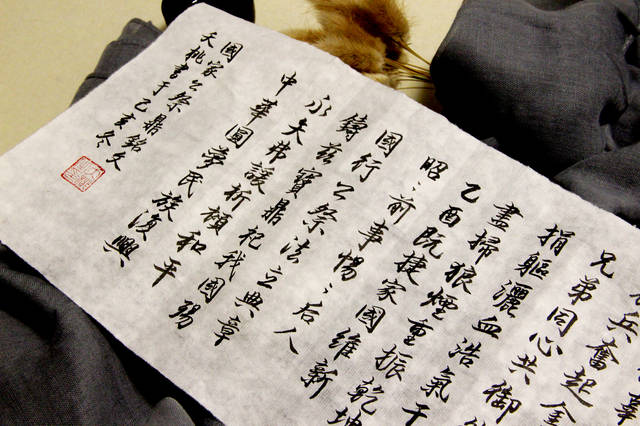 辜
兵奮起金
兄弟同心共御
捐軀灑血浩氣干
盡掃狼煙重振乾坤
乙酉既捷家國維新
昭〻前事惕〻后人
國行公祭法立典章
鑄茲寶鼎祀我國殤
永矢弗諼祈願和平
中華圓夢民族復興
國家公祭鼎銘文
夭桃書于乙亥冬